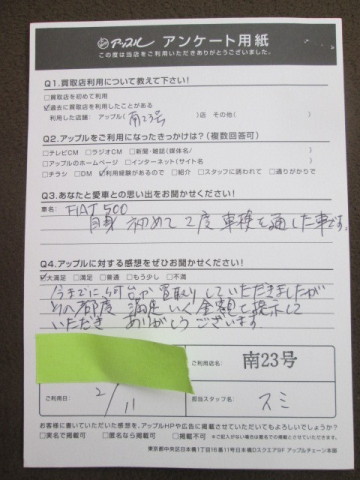 アップル アンケート用紙
この度は当店をご利用いただきありがとうございました。
Q1.買取店利用について教えて下さい!
□買取店を初めて利用
☑過去に買取店を利用したことがある
利用した店舗: アップル( 南23号 )店 その他( )
Q2.アップルをご利用になったきっかけは?(複数回答可)
□テレビCM □ラジオCM □新聞・雑誌(媒体名: )
□アップルのホームページ □インターネット(サイト名 )
□チラシ □DM ☑利用経験があるので □紹介 □スタッフに誘われて □通りがかりで
Q3.あなたと愛車との思い出をお聞かせください!
車名: FIAT 500
自身 初めて 2度 車検を通した車です。
Q4.アップルに対する感想をぜひお聞かせください!
☑大満足 □満足 □普通 □もう少し □不満
今までに 何台か 買取りしていただきましたが
その都度 満足いく金額を提示して
いただき ありがとうございます
ご利用店名: 南23号
ご利用日: 2/11
担当スタッフ名: スミ
お客様に書いていただいた感想を、アップルHPや広告に掲載させていただいてもよろしいでしょうか?
□実名で掲載可 □匿名なら掲載可 □掲載不可
東京都中央区日本橋1丁目16番11号日本橋Dスクエア5F アップルチェーン本部